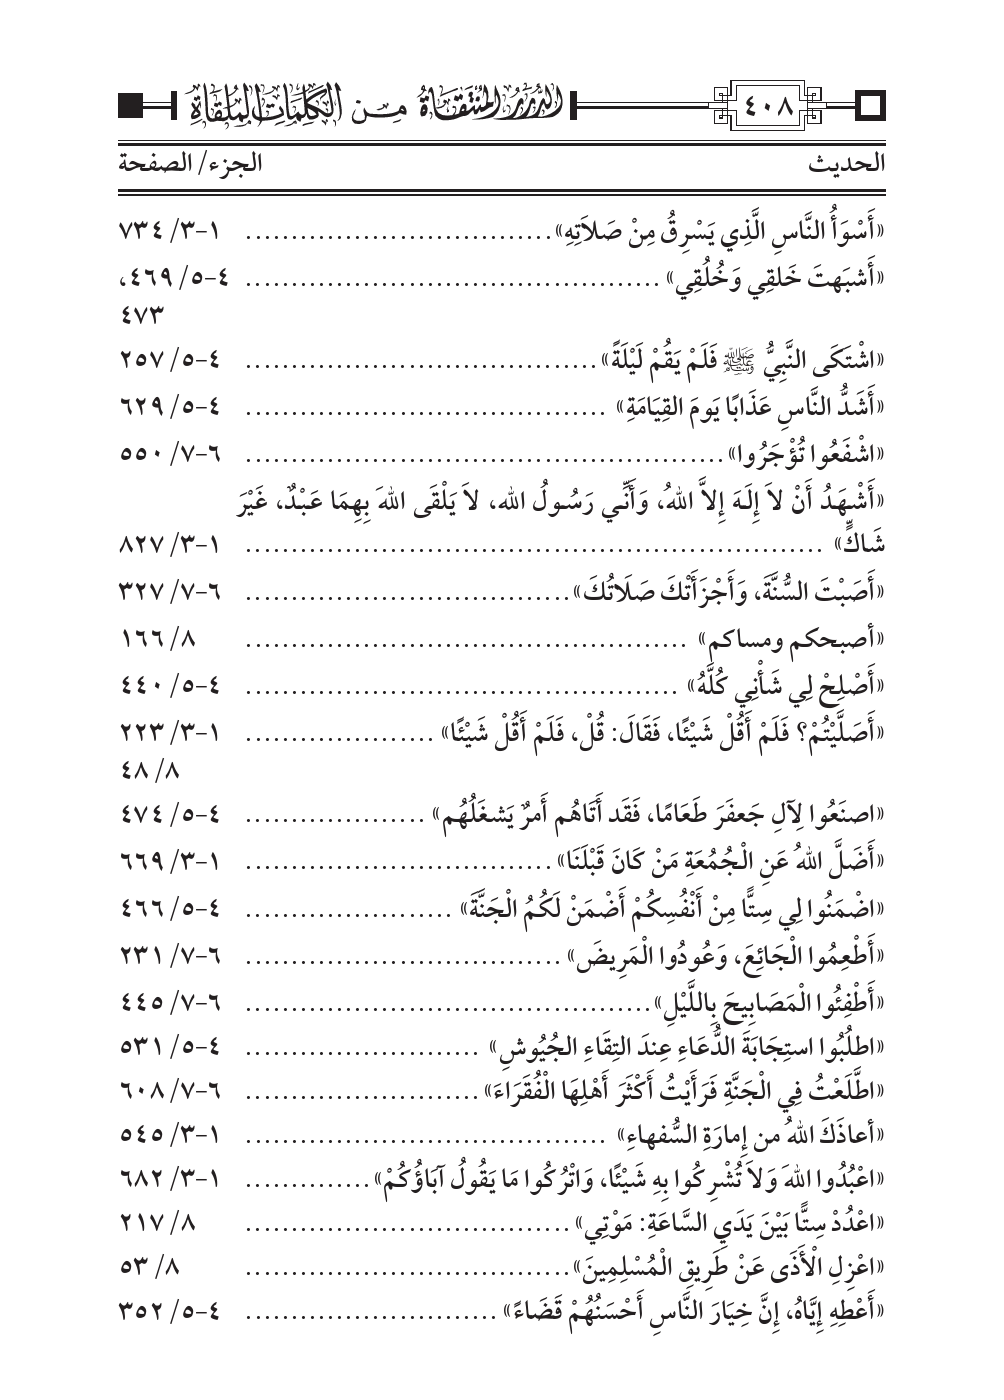 ٤٠٨ الدرر المنتقاة من الكلمات الملقاة
الحديث الجزء/ الصفحة
«أَسْوَأُ النَّاسِ الَّذِي يَسْرِقُ مِنْ صَلاَتِهِ» ................................. ١-٣/ ٧٣٤
«أَشبَهتَ خَلقِي وَخُلُقِي» ............................................. ٤-٥/ ٤٦٩،
٤٧٣
«اشْتَكَى النَّبِيُّ ﷺ فَلَمْ يَقُمْ لَيْلَةً» ...................................... ٤-٥/ ٢٥٧
«أَشَدُّ النَّاسِ عَذَابًا يَومَ القِيَامَةِ» ....................................... ٤-٥/ ٦٢٩
«اشْفَعُوا تُؤْجَرُوا» .................................................... ٦-٧/ ٥٥٠
«أَشْهَدُ أَنْ لاَ إِلَهَ إِلاَّ اللهُ، وَأَنِّي رَسُولُ الله، لاَ يَلْقَى اللهَ بِهِمَا عَبْدٌ، غَيْرَ
شَاكٍّ» ............................................................... ١-٣/ ٨٢٧
«أَصَبْتَ السُّنَّةَ، وَأَجْزَأَتْكَ صَلَاتُكَ» ................................... ٦-٧/ ٣٢٧
«أصبحكم ومساكم» ................................................ ٨/ ١٦٦
«أَصْلِحْ لِي شَأْنِي كُلَّهُ» ............................................... ٤-٥/ ٤٤٠
«أَصَلَّيْتُمْ؟ فَلَمْ أَقُلْ شَيْئًا، فَقَالَ: قُلْ، فَلَمْ أَقُلْ شَيْئًا» .................... ١-٣/ ٢٢٣
٨/ ٤٨
«اصنَعُوا لِآلِ جَعفَرَ طَعَامًا، فَقَد أَتَاهُم أَمرٌ يَشغَلُهُم» .................... ٤-٥/ ٤٧٤
«أَضَلَّ اللهُ عَنِ الْجُمُعَةِ مَنْ كَانَ قَبْلَنَا» ................................. ١-٣/ ٦٦٩
«اضْمَنُوا لِي سِتًّا مِنْ أَنْفُسِكُمْ أَضْمَنْ لَكُمُ الْجَنَّةَ» ....................... ٤-٥/ ٤٦٦
«أَطْعِمُوا الْجَائِعَ، وَعُودُوا الْمَرِيضَ» .................................. ٦-٧/ ٢٣١
«أَطْفِئُوا الْمَصَابِيحَ بِاللَّيْلِ» ............................................ ٦-٧/ ٤٤٥
«اطلُبُوا استِجَابَةَ الدُّعَاءِ عِندَ التِقَاءِ الجُيُوشِ» .......................... ٤-٥/ ٥٣١
«اطَّلَعْتُ فِي الْجَنَّةِ فَرَأَيْتُ أَكْثَرَ أَهْلِهَا الْفُقَرَاءَ» .......................... ٦-٧/ ٦٠٨
«أعاذَكَ اللهُ من إِمارَةِ السُّفهاءِ» ....................................... ١-٣/ ٥٤٥
«اعْبُدُوا اللهَ وَلاَ تُشْرِكُوا بِهِ شَيْئًا، وَاتْرُكُوا مَا يَقُولُ آبَاؤُكُمْ» .............. ١-٣/ ٦٨٢
«اعْدُدْ سِتًّا بَيْنَ يَدَيِ السَّاعَةِ: مَوْتِي» ................................... ٨/ ٢١٧
«اعْزِلِ الْأَذَى عَنْ طَرِيقِ الْمُسْلِمِينَ» ................................... ٨/ ٥٣
«أَعْطِهِ إِيَّاهُ، إِنَّ خِيَارَ النَّاسِ أَحْسَنُهُمْ قَضَاءً» ........................... ٤-٥/ ٣٥٢